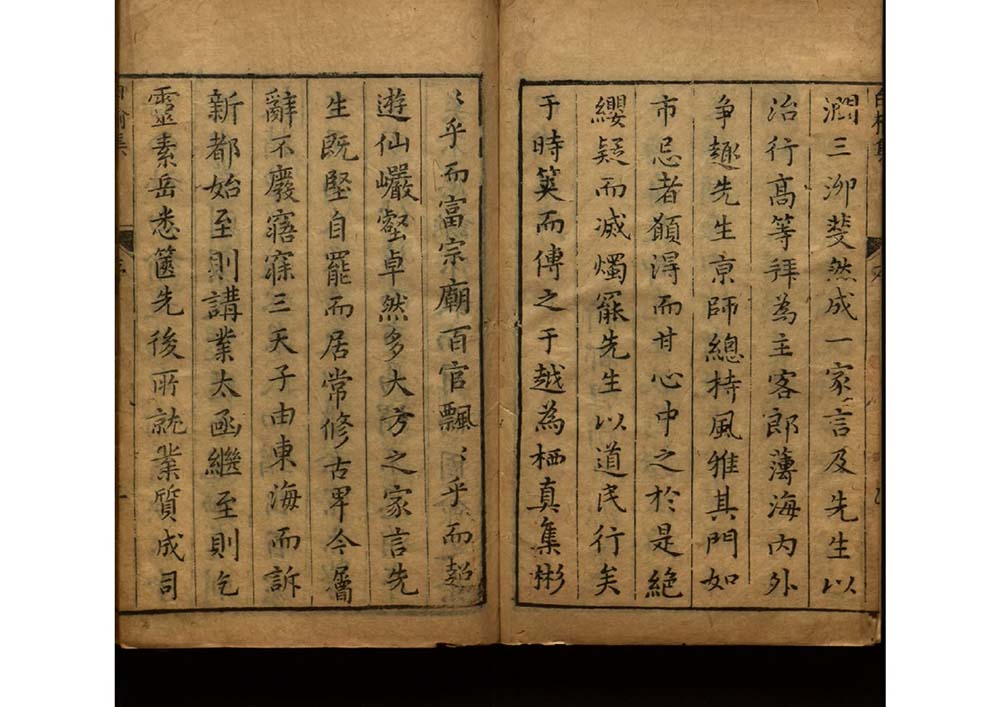 潤三泖斐然成一家言及先生以
治行高等拜為主客郎薄海內外
争趣先生京師總持風雅其門如
市忌者願得而甘心中之於是絕
纓疑而滅燭罷先生以道民行矣
于時筴而傳之于越為栖真集彬
〻乎而富宗廟百官飄〻乎而超
遊仙巖壑卓然多大方之家言先
生既堅自罷而居常修古卑今層
辭不廢寤寐三天子由東海而訴
新都始至則講業太函繼至則乞
靈素岳悉篋先後所就業質成司